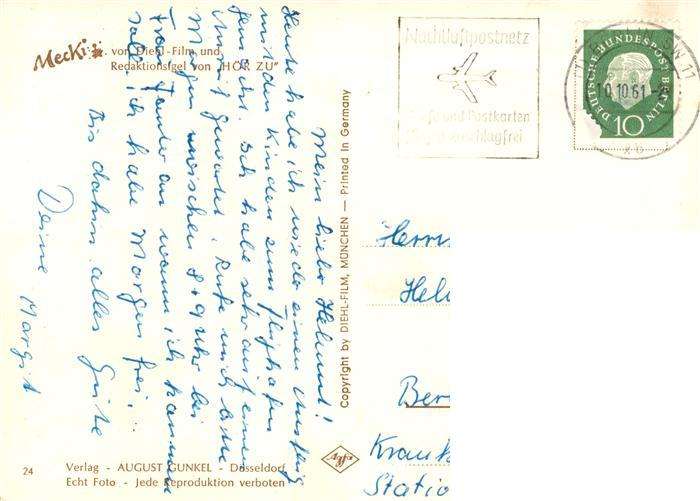 Mecki
... von Diehl-Film und
Redaktionsigel von "HÖR ZU"
Nachtluftpostnetz
und Postkarten
schlagfrei
10.10.61
DEUTSCHE BUNDESPOST BERLIN
10
Mein lieber Helmut!
Heute habe ich wieder einen Ausflug
mit den Kindern zum Flughafen
gemacht. Ich habe sehr auf einen
gewartet. Rufe mich bitte
Morgen zwischen 8 + 9 Uhr bei
Frau an wann ich kommen
soll, ich habe Morgen frei.
Bis dahin alles Gute
Deine Margit
Copyright by DIEHL-FILM, MÜNCHEN — Printed in Germany
Herrn
Hel
Ber
Krank
Statio
Agfa
24
Verlag - AUGUST GUNKEL - Düsseldorf
Echt Foto - Jede Reproduktion verboten